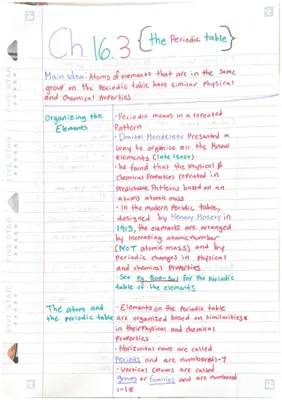 Ch. 16.3 {the Periodic table}
Main Idea: Atoms of elements that are in the same
group on the Periodic table have similar Physical
and Chemical Properties
Organizing the
Elements
• Periodic means in a repeated
Pattern
• Dimitri Mendeleev Presented a
way to organize all the know
elements (late 1800s)
• he found that the physical &
Chemical Properties repeated in
Predictable Patterns based on an
atoms atomic mass
• In the modern Peridic table,
designed by Henry Mosely in
1913, the elements are arranged
by increasing atomic number
(NOT atomic mass) and by
Periodic changes in physical
and chemical Properties
• See Pg. for the Periodic
table of the elements
The atom and
the periodic table
• Elements on the Periodic table
are organized based on similarities
in their Physical and chemical
Properties
• Horizontal rows are called
Periods and are numbered 1-7
• Vertical are called
groups or families and are numbered
1-18
FIVE STAR
FIVE STAR
FIVE STAR
FIVE STAR